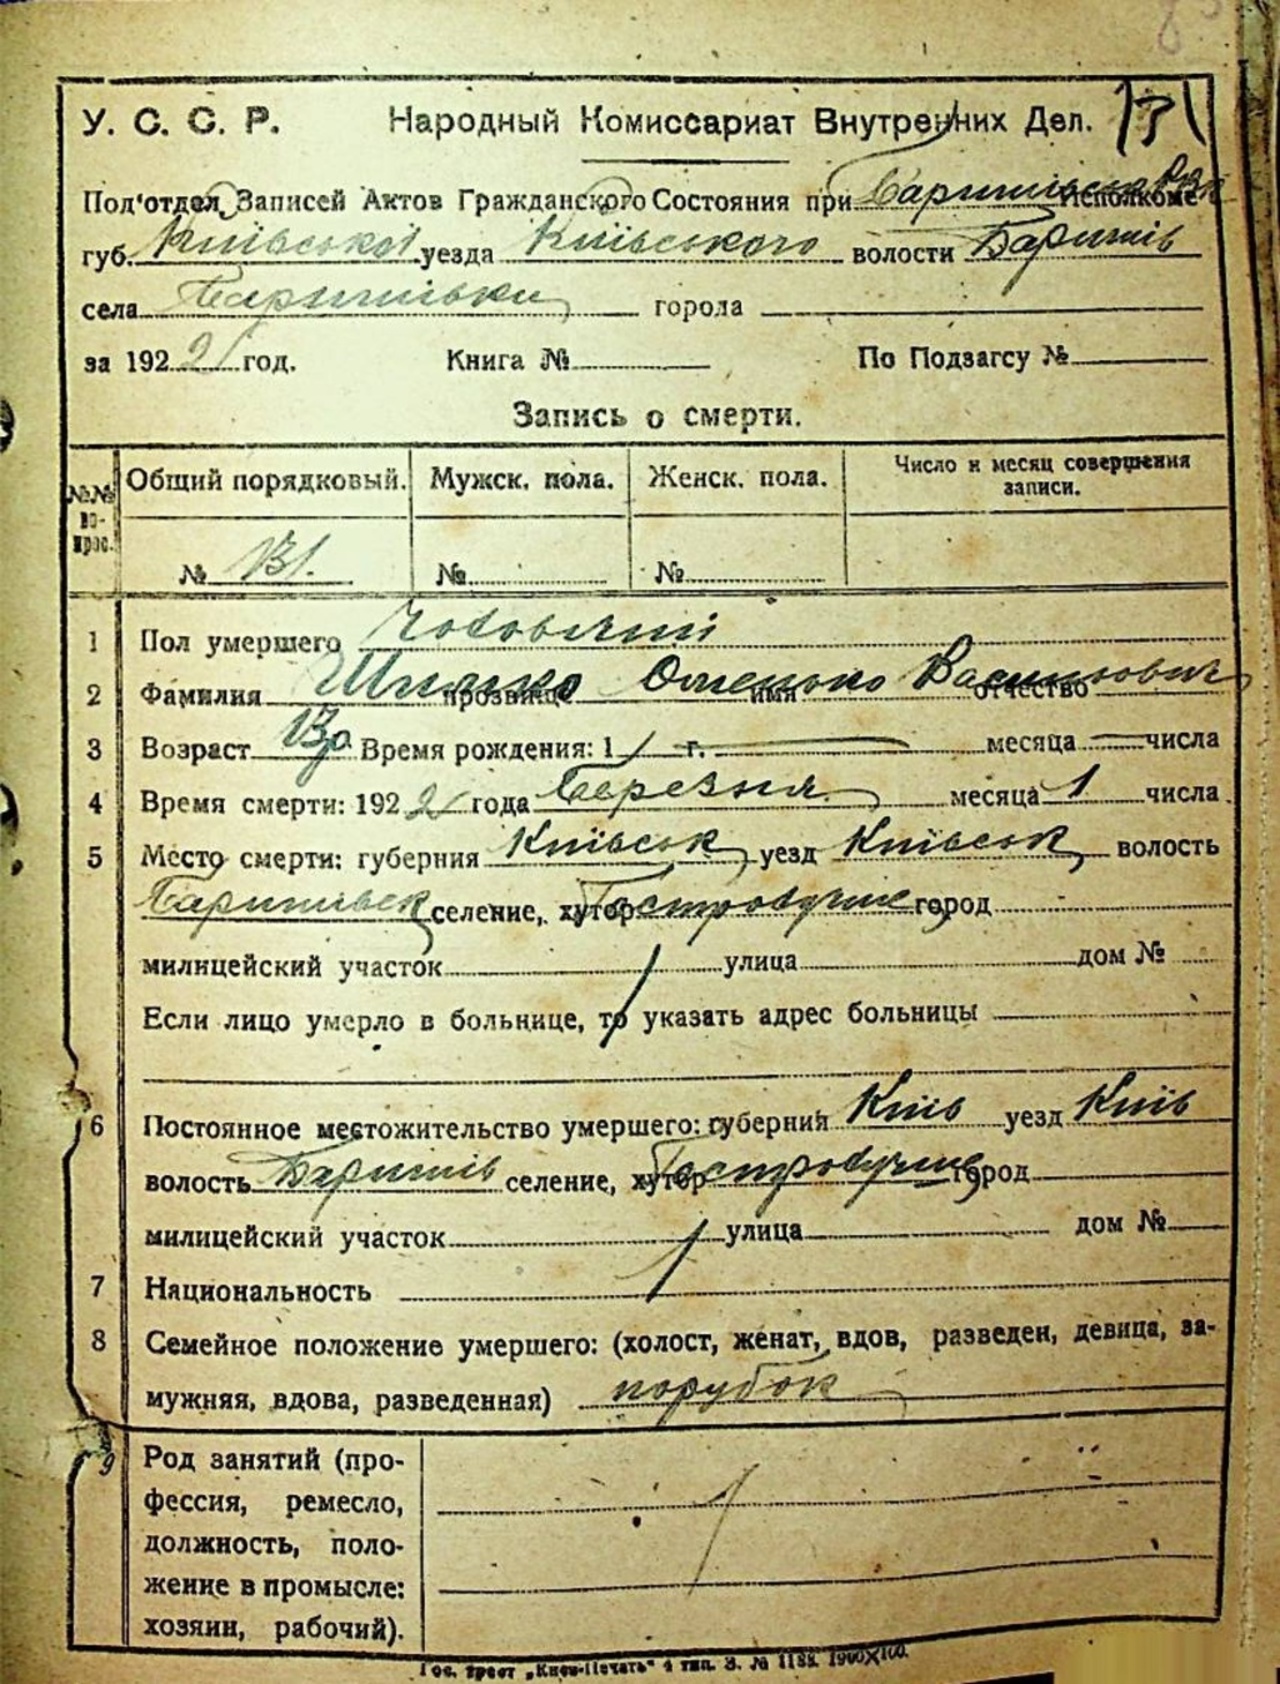 У. С. С. Р. Народный Комиссариат Внутренних Дел.
Под'отдел Записей Актов Гражданского Состояния при Исполкоме
губ. Київської уезда Київського волости Баришів
села Баришівки города
за 192 год.   Книга №   По Подзагсу №
Запись о смерти.
№№ вопрос. Общий порядковый. Мужск. пола. Женск. пола. Число и месяц совершения записи.
№ 131. № №
1 Пол умершего Чоловічий
2 Фамилия прозвище имя отчество Васильович
3 Возраст Время рождения: 1 г. месяца числа
4 Время смерти: 192 года Березня месяца 1 числа
5 Место смерти: губерния Київськ уезд Київськ волость
Баришівськ селение, хутор город
милицейский участок улица дом №
Если лицо умерло в больнице, то указать адрес больницы
6 Постоянное местожительство умершего: губерния Київ уезд Київ
волость Баришів селение, хутор город
милицейский участок улица дом №
7 Национальность
8 Семейное положение умершего: (холост, женат, вдов, разведен, девица, за-
мужняя, вдова, разведенная) парубок
9 Род занятий (про-
фессия, ремесло,
должность, поло-
жение в промысле:
хозяин, рабочий).
Гос. трест „Киев-Печать" 4 тип. З. № 1188. 1900×100.